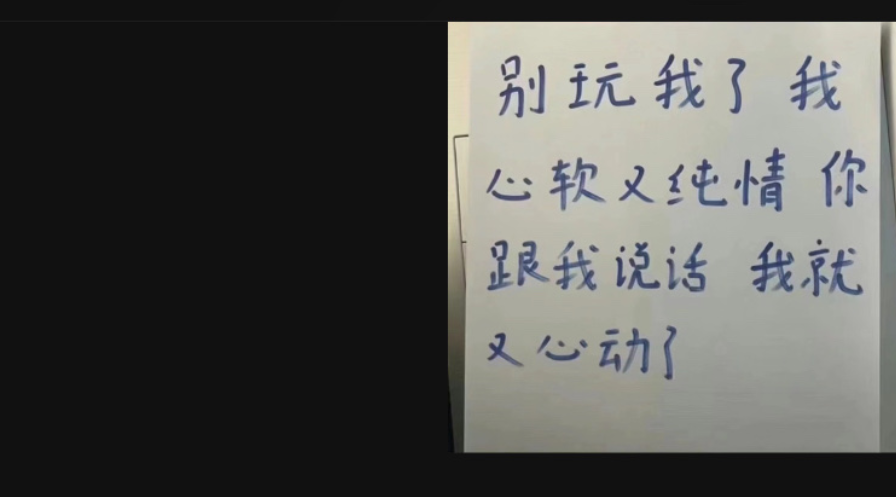 别玩我了 我
心软又纯情 你
跟我说话 我就
又心动了